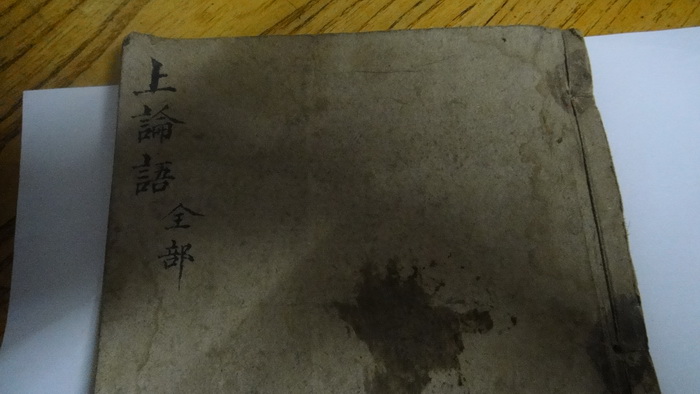 上論語
全部